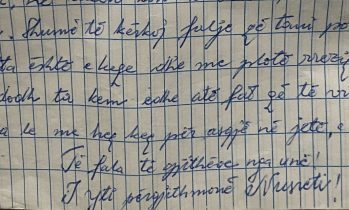 . Shumë të kërkoj falje që tani po
ta është e huge dhe me plotë rrezi
dodh ta kem edhe atë fat që të rr
a le me heq keq për asgjë në jetë, e
Të fala të gjithëve nga unë!
I yti përgjithmonë Nusreti!